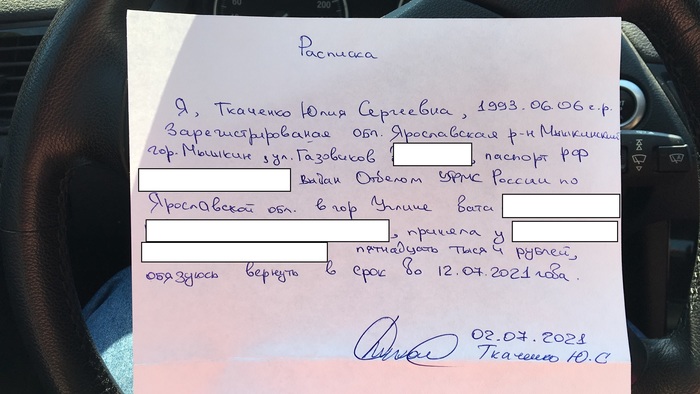 60
200
Расписка
Я, Ткаченко Юлия Сергеевна, 1993.06.06 г.р.
Зарегистрированая обл. Ярославская р-н Мышкинский
гор. Мышкин, ул. Газовиков , паспорт РФ
выдан Отделом УФМС России по
Ярославской обл. в гор Угличе
, приняла у
пятнадцать тысяч рублей,
обязуюсь вернуть в срок до 12.07.2021 года.
02.07.2021
Ткаченко Ю.С